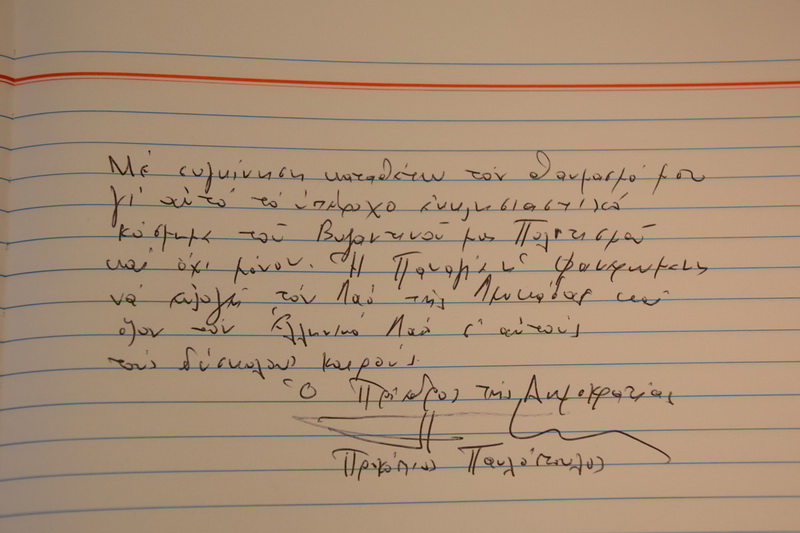 Μέ συγκίνηση καταθέτω τόν θαυμασμό μου
γι' αὐτό τό ὑπέροχο ἐκκλησιαστικό
κόσμημα τοῦ Βυζαντινοῦ μας Πολιτισμοῦ
καί ὄχι μόνον. Ἡ Παναγία
νά εὐλογῆ τόν Λαό τῆς Λευκάδας καί
ὅλον τόν Ἑλληνικό Λαό σ' αὐτούς
τούς δύσκολους καιρούς.
Ὁ Πρόεδρος τῆς Δημοκρατίας
Προκόπιος Παυλόπουλος